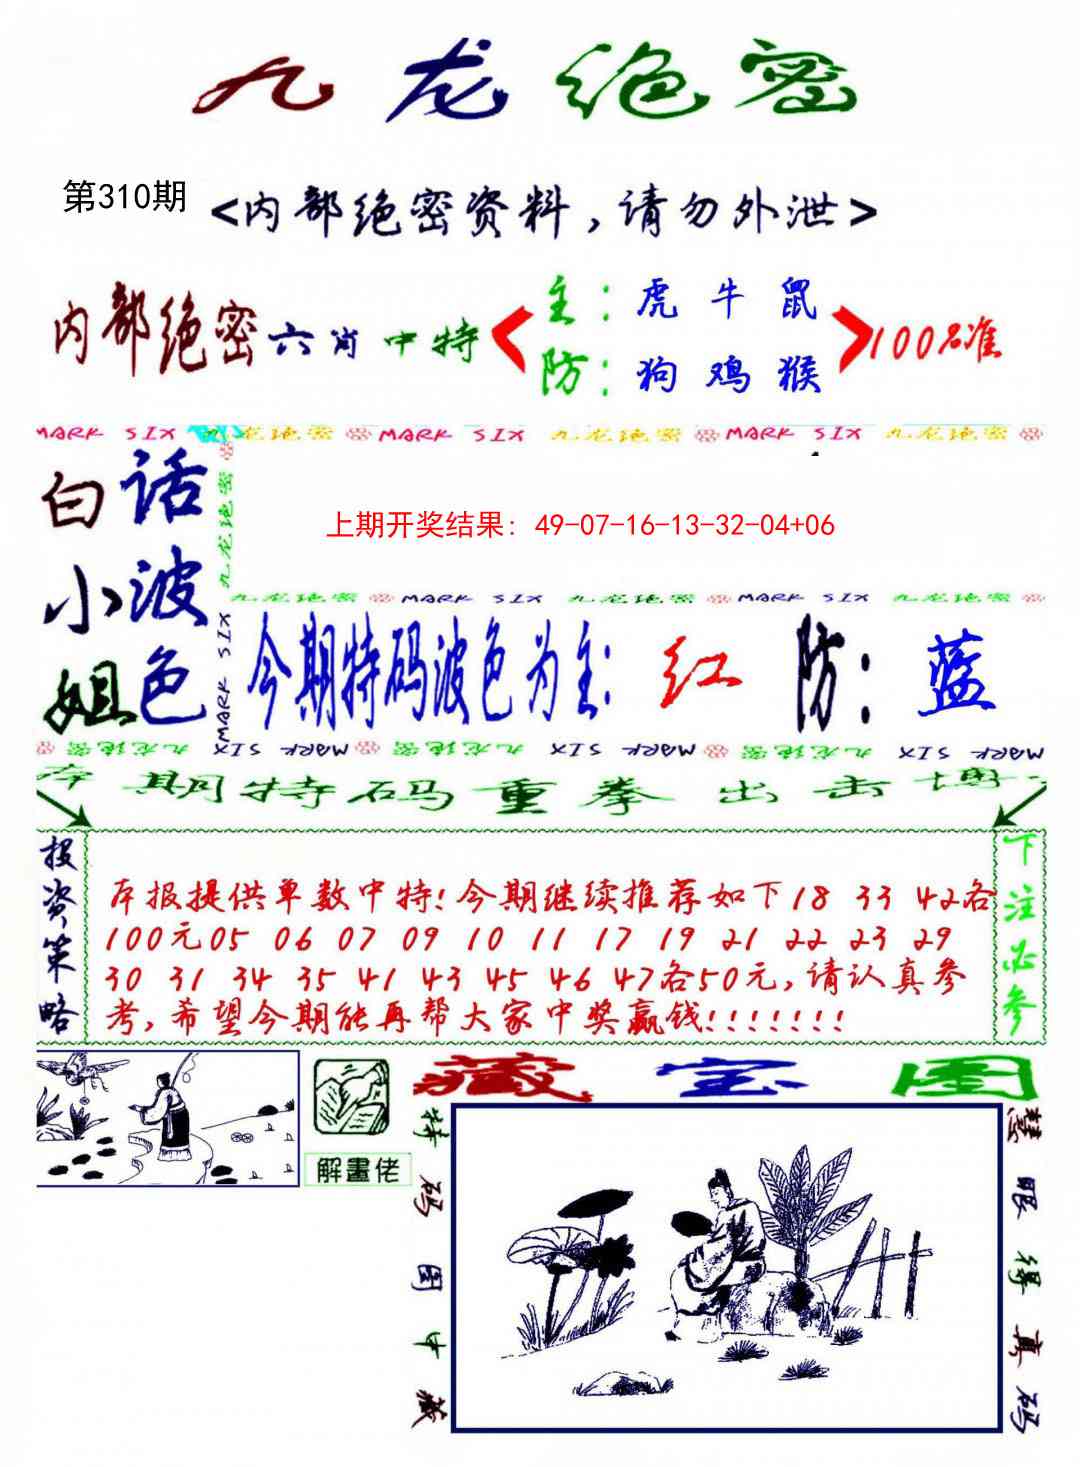 九龙绝密
第310期
<内部绝密资料，请勿外泄>
内部绝密六肖中特
主：虎 牛 鼠
防：狗 鸡 猴
100%准
MARK SIX 九龙绝密 MARK SIX 九龙绝密 MARK SIX 九龙绝密
白话
小波
姐色
九龙绝密
MARK SIX
上期开奖结果：49-07-16-13-32-04+06
九龙绝密 MARK SIX 九龙绝密 MARK SIX 九龙绝密
今期特码波色为主：红 防：蓝
九龙绝密 MARK SIX 九龙绝密 MARK SIX 九龙绝密 MARK SIX
本期特码重拳出击博
投资策略
本报提供单数中特!今期继续推荐如下18 33 42各
100元05 06 07 09 10 11 17 19 21 22 23 29
30 31 34 35 41 43 45 46 47各50元,请认真参
考,希望今期能再帮大家中奖赢钱!!!!!!!
下注必参
解畫佬
藏宝图
特码图中藏
慧眼得真码